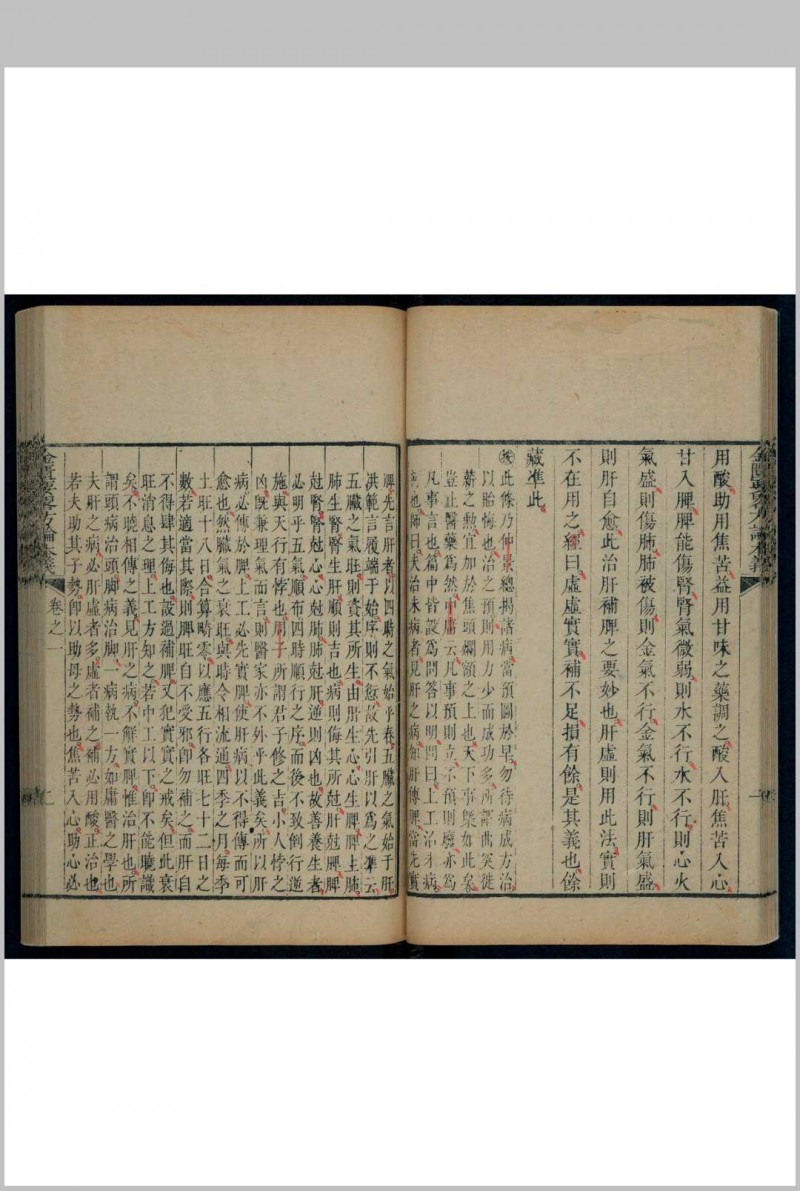 用酸助用焦苦益用甘味之藥調之酸入肝焦苦入心
甘入脾脾能傷腎腎氣微弱則水不行水不行則心火
氣盛則傷肺肺被傷則金氣不行金氣不行則肝氣盛
則肝自愈此治肝補脾之要妙也肝虛則用此法實則
不在用之經曰虛虛實實補不足損有餘是其義也餘
藏準此
此條乃仲景總揭諸病當預圖於早勿待病成方治
以貽悔也治之預則用力少而成功多所謂曲突徙
薪之勲宜加於焦頭爛額之上也天下事槩如此矣
豈止醫藥為然中庸云凡事預則立不預則廢亦為
凡事言也篇中皆設為問答以明問曰上工治未病
何也師曰夫治未病者見肝之病知肝傳脾當先實
脾先言肝者以四時之氣始乎春五臟之氣始于肝
洪範言履端于始序則不愆故先引肝以為之準云
五臟之氣旺則責其所生由肝生心心生脾脾生肺
肺生腎腎生肝順則吉也病則侮其所尅肝尅脾脾
尅腎腎尅心心尅肺肺尅肝逆則凶也故善養生者
必明乎五氣順布四時順行之序而後不致倒行逆
施與天行有悖也周子所謂君子修之吉小人悖之
凶旣兼理氣而言則醫家亦不外乎此義矣所以肝
病必傳於脾上工必先實脾使肝病以不得傳而可
愈也然臟氣之衰旺與時令相流通四季之月每季
土旺十八日合算畸零以應五行各旺七十二日之
數若適當其際則脾旺自不受邪卽勿補之而肝自
不得肆其侮也設過補脾又犯實實之戒矣但此衰
旺消息之理上工方知之若中工以下卽不能曉識
矣不曉相傳之義見肝之病不解實脾惟治肝也所
謂頭病治頭脚病治脚一病執一方如庸醫之學也
夫肝之病必肝虛者多虛者補之補必用酸正治也
若夫助其子勢卽以助母之勢也焦苦入心助心必
卷之一